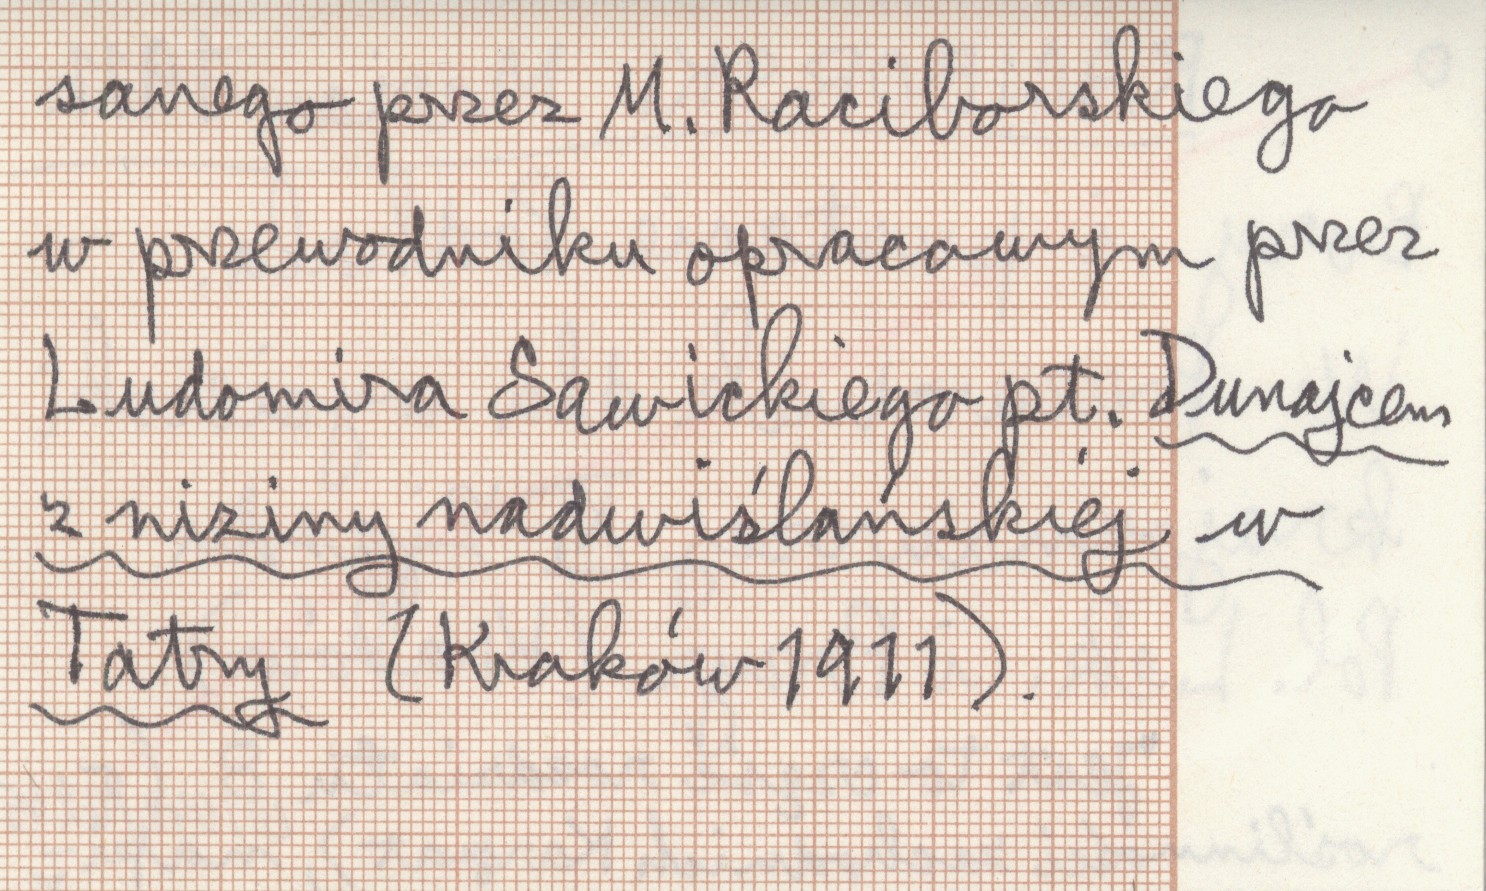 sanego przez M. Raciborskiego
w przewodniku opracowym przez
Ludomira Sawickiego pt. Dunajcem
z niziny nadwiślańskiéj w
Tatry (Kraków 1911).